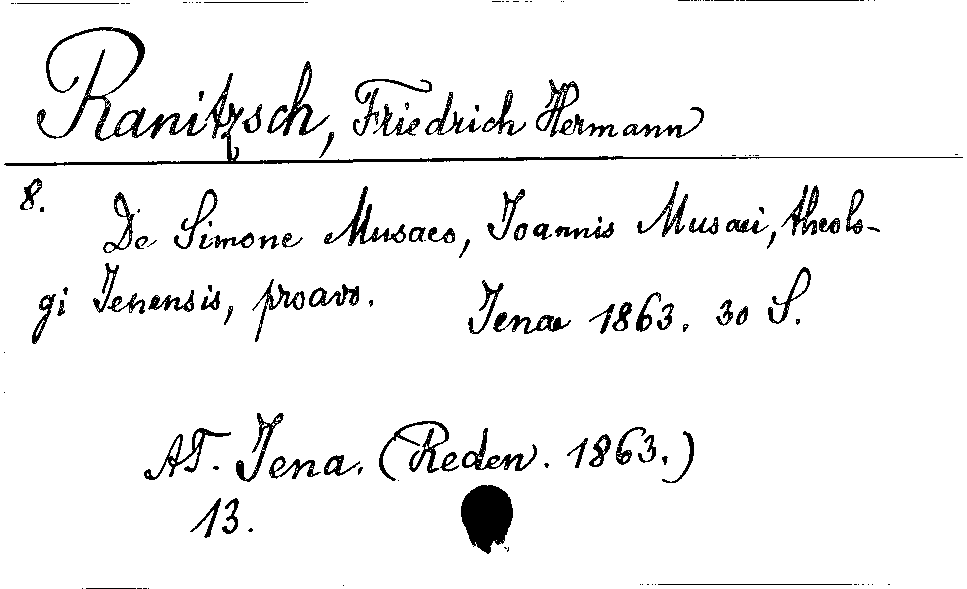 Ranitzsch, Friedrich Hermann
8.
De Simone Musaeo, Ioannis Musaei, theolo-
gi Ienensis, proavo.
Ienae 1863. 30 S.
AT. Jena. (Reden. 1863.)
13.